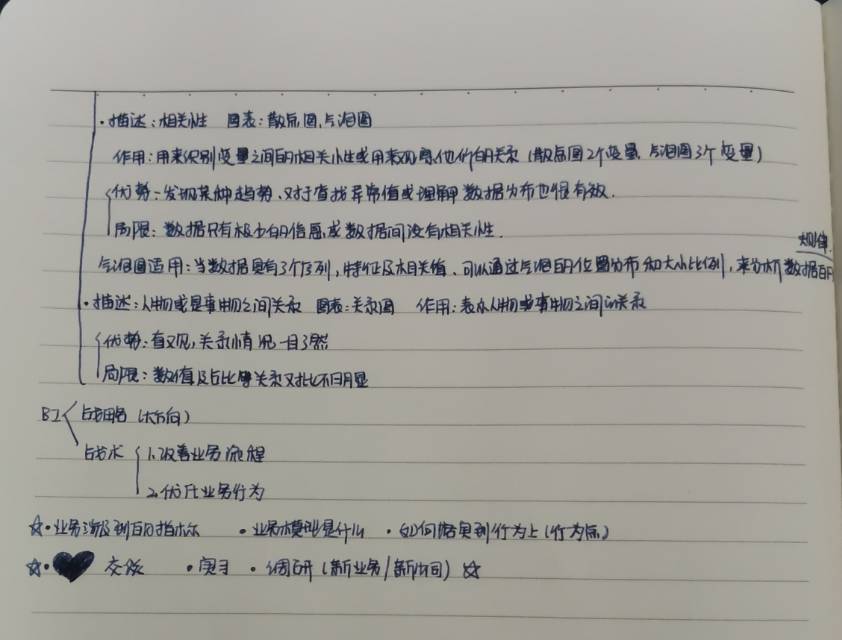 ·描述:相关性 图表:散点图、气泡图
作用:用来识别变量之间的相关性或用来观察他们的关系(散点图2个变量,气泡图3个变量)
优势:发现某种趋势、对于查找异常值或理解数据分布也很有效.
局限:数据只有极少的信息或数据间没有相关性.
规律.
气泡图适用:当数据具有3个序列,特征及相关值、可以通过气泡的位置分布和大小比例,来分析数据的
·描述:人物或是事物之间关系 图表:关系图 作用:表示人物或事物之间的关系
优势:直观,关系情况一目了然
局限:数值及占比等关系对比不明显
BI 战略(大方向)
战术 1.改善业务流程
2.优化业务行为
☆·业务涉及到的指标 ·业务模型是什么 ·如何落实到行为上(行为点)
☆·♥ 交谈 ·实习 ·调研(新业务/新时间)☆